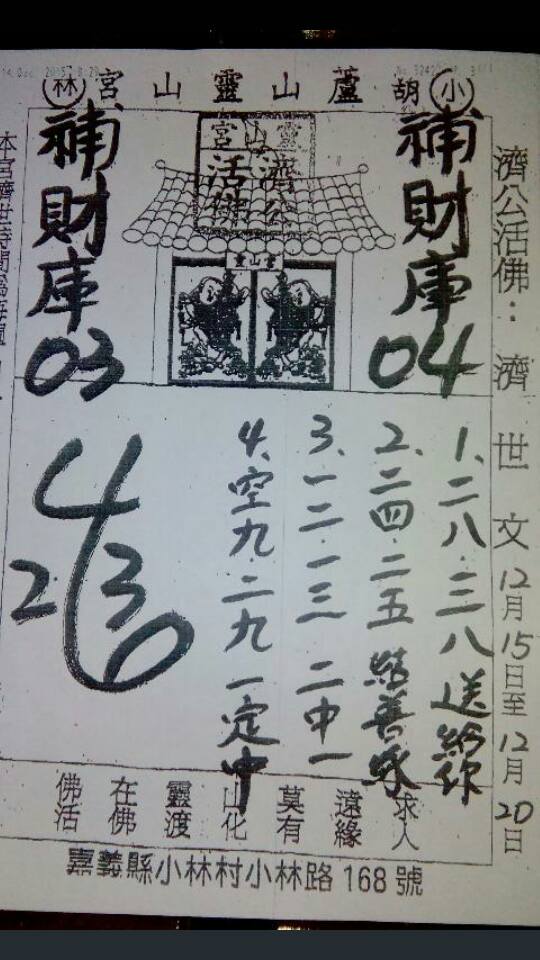 小 胡 蘆山靈山宮 林
濟公活佛：濟世文12月15日至12月20日
補財庫04
靈山宮
濟公活佛
靈山宮
補財庫03
1、二八．三八送給你
2、二四．二五結善緣
3、一二．一三 二中一
4、空九．二九一定中
4
2 3
6
求人
遠緣
莫有
山化
靈渡
在佛
佛活
嘉義縣小林村小林路168號